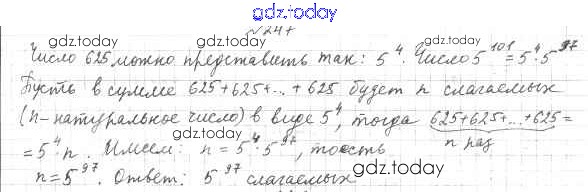 gdz.today
№247
gdz.today gdz.today
Число 625 можно представить так: 5⁴. Число 5¹⁰¹ = 5⁴·5⁹⁷
Пусть в сумме 625+625+...+625 будет n слагаемых
gdz.today gdz.today
(n-натуральное число) в виде 5⁴, тогда 625+625+...+625 =
= 5⁴n. Имеем: n = 5⁴·5⁹⁷, то есть n раз
n = 5⁹⁷. Ответ: 5⁹⁷ слагаемых
gdz.today gdz.today